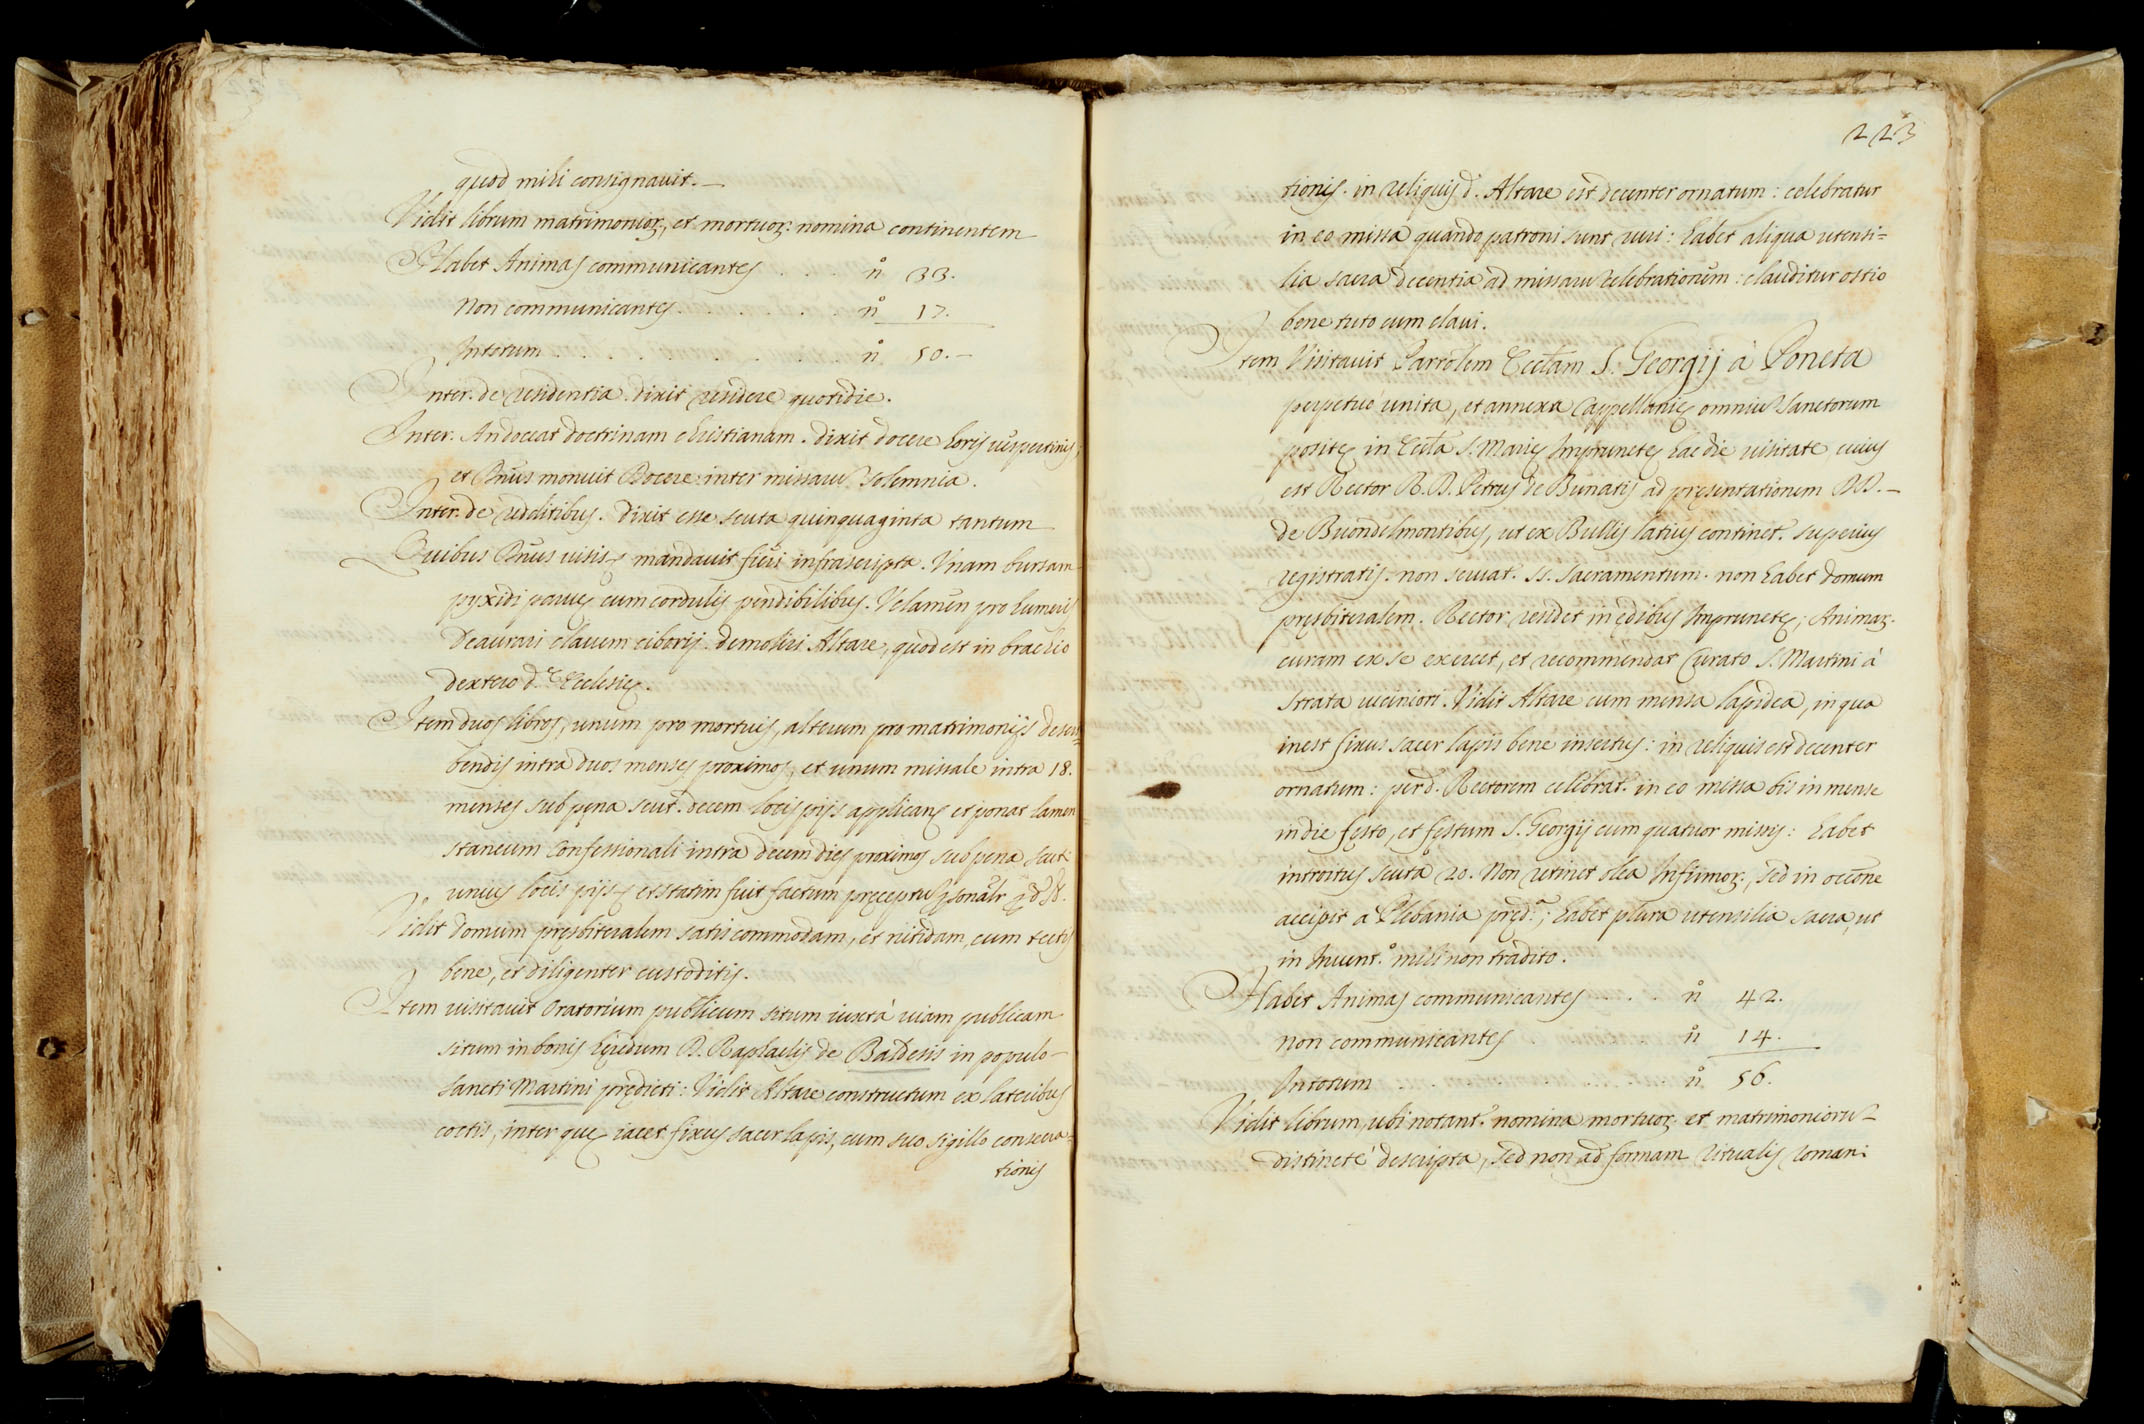 quod mihi consignauit.
Vidit librum matrimonioꝝ, et mortuoꝝ nomina continentem
Habet Animas communicantes . . . . n.º 33.
Non communicantes . . . . . . . n.º 17.
Intotum . . . . . . . . . . . n.º 50.
Inter. de residentia. dixit residere quotidie.
Inter. An doceat doctrinam christianam. dixit docere horis uespertinis;
et Dñus monuit Docere inter missaru solemnia.
Inter. de redditibus. dixit esse scuta quinquaginta tantum
Quibus Dñus uisis, mandauit fieri infrascripta. Vnam bursam
pyxidi paruę cum cordulis pendibilibus. Velamen pro humeris
Deaurari clauem ciborij. demoliri Altare, quod est in brachio
dextero d.ę Ecclesię.
Item duos libros, unum pro mortuis, alterum pro matrimonijs descri=
bendis intra duos menses proximos, et unum missale intra 18.
menses sub pęna scut. decem locis pijs applicanę et ponat lamen
staneum Confessionali intra decem dies proximos sub pena scuti
unius locis pijs, et statim fuit factum pręceptu
Vidit domum presbiteralem satis commodam, et nitidam, cum tectis
bene, et diligenter custoditis.
Item uisitauit Oratorium publicum situm iuxtà uiam publicam
situm in bonis hęredum D. Raphaelis de Baldesis in populo
Sancti Martini prędicti: Vidit Altare constructum ex lateribus
coctis, inter quę iacet fixus sacer lapis, cum suo sigillo consecra=
tionis
223
tionis. in reliquis d. Altare est decenter ornatum: celebratur
in eo missa quando patroni sunt ruri: habet aliqua utensi=
lia sacra decentia ad missaru celebrationem: clauditur ostio
bene tuto cum claui.
Item Visitauit Parrolem Ecclam S. Georgij à Poneta
perpetuo unita, et annexa Cappellanię omniu Sanctorum
positę in Eccla S. Marię Imprunetę hac die uisitatę cuius
est Rector R. D. Petrus de Bunatis ad pręsentationem DD.
de Buondelmontibus, ut ex Bullis latius continet. superius
registratis. non seruat. SS. Sacramentum. non habet domum
pręsbiteralem. Rector residet in ędibus Imprunetę; Animaꝝ
curam ex se exercet, et recommendat Curato S. Martini à
Strata uiciniori. Vidit Altare cum mensa lapidea, in qua
inest fixus sacer lapis bene insertus: in reliquis est decenter
ornatum: per d. Rectorem celebrat. in eo missa bis in mense
in die festo, et festum S. Georgij cum quatuor missis: habet
introitus scuta 20. Non retinet olea Infirmoꝝ, sed in occōne
accipit a Plebania pręd.ª; habet plura utensilia sacra, ut
in Inuent.º mihi non tradito.
Habet Animas communicantes . . . n.º 42.
Non communicantes n.º 14.
Intotum . . . . . n.º 56.
Vidit librum, ubi notant. nomina mortuoꝝ et matrimonioru
distinctè descripta, sed non ad formam Ritualis romani